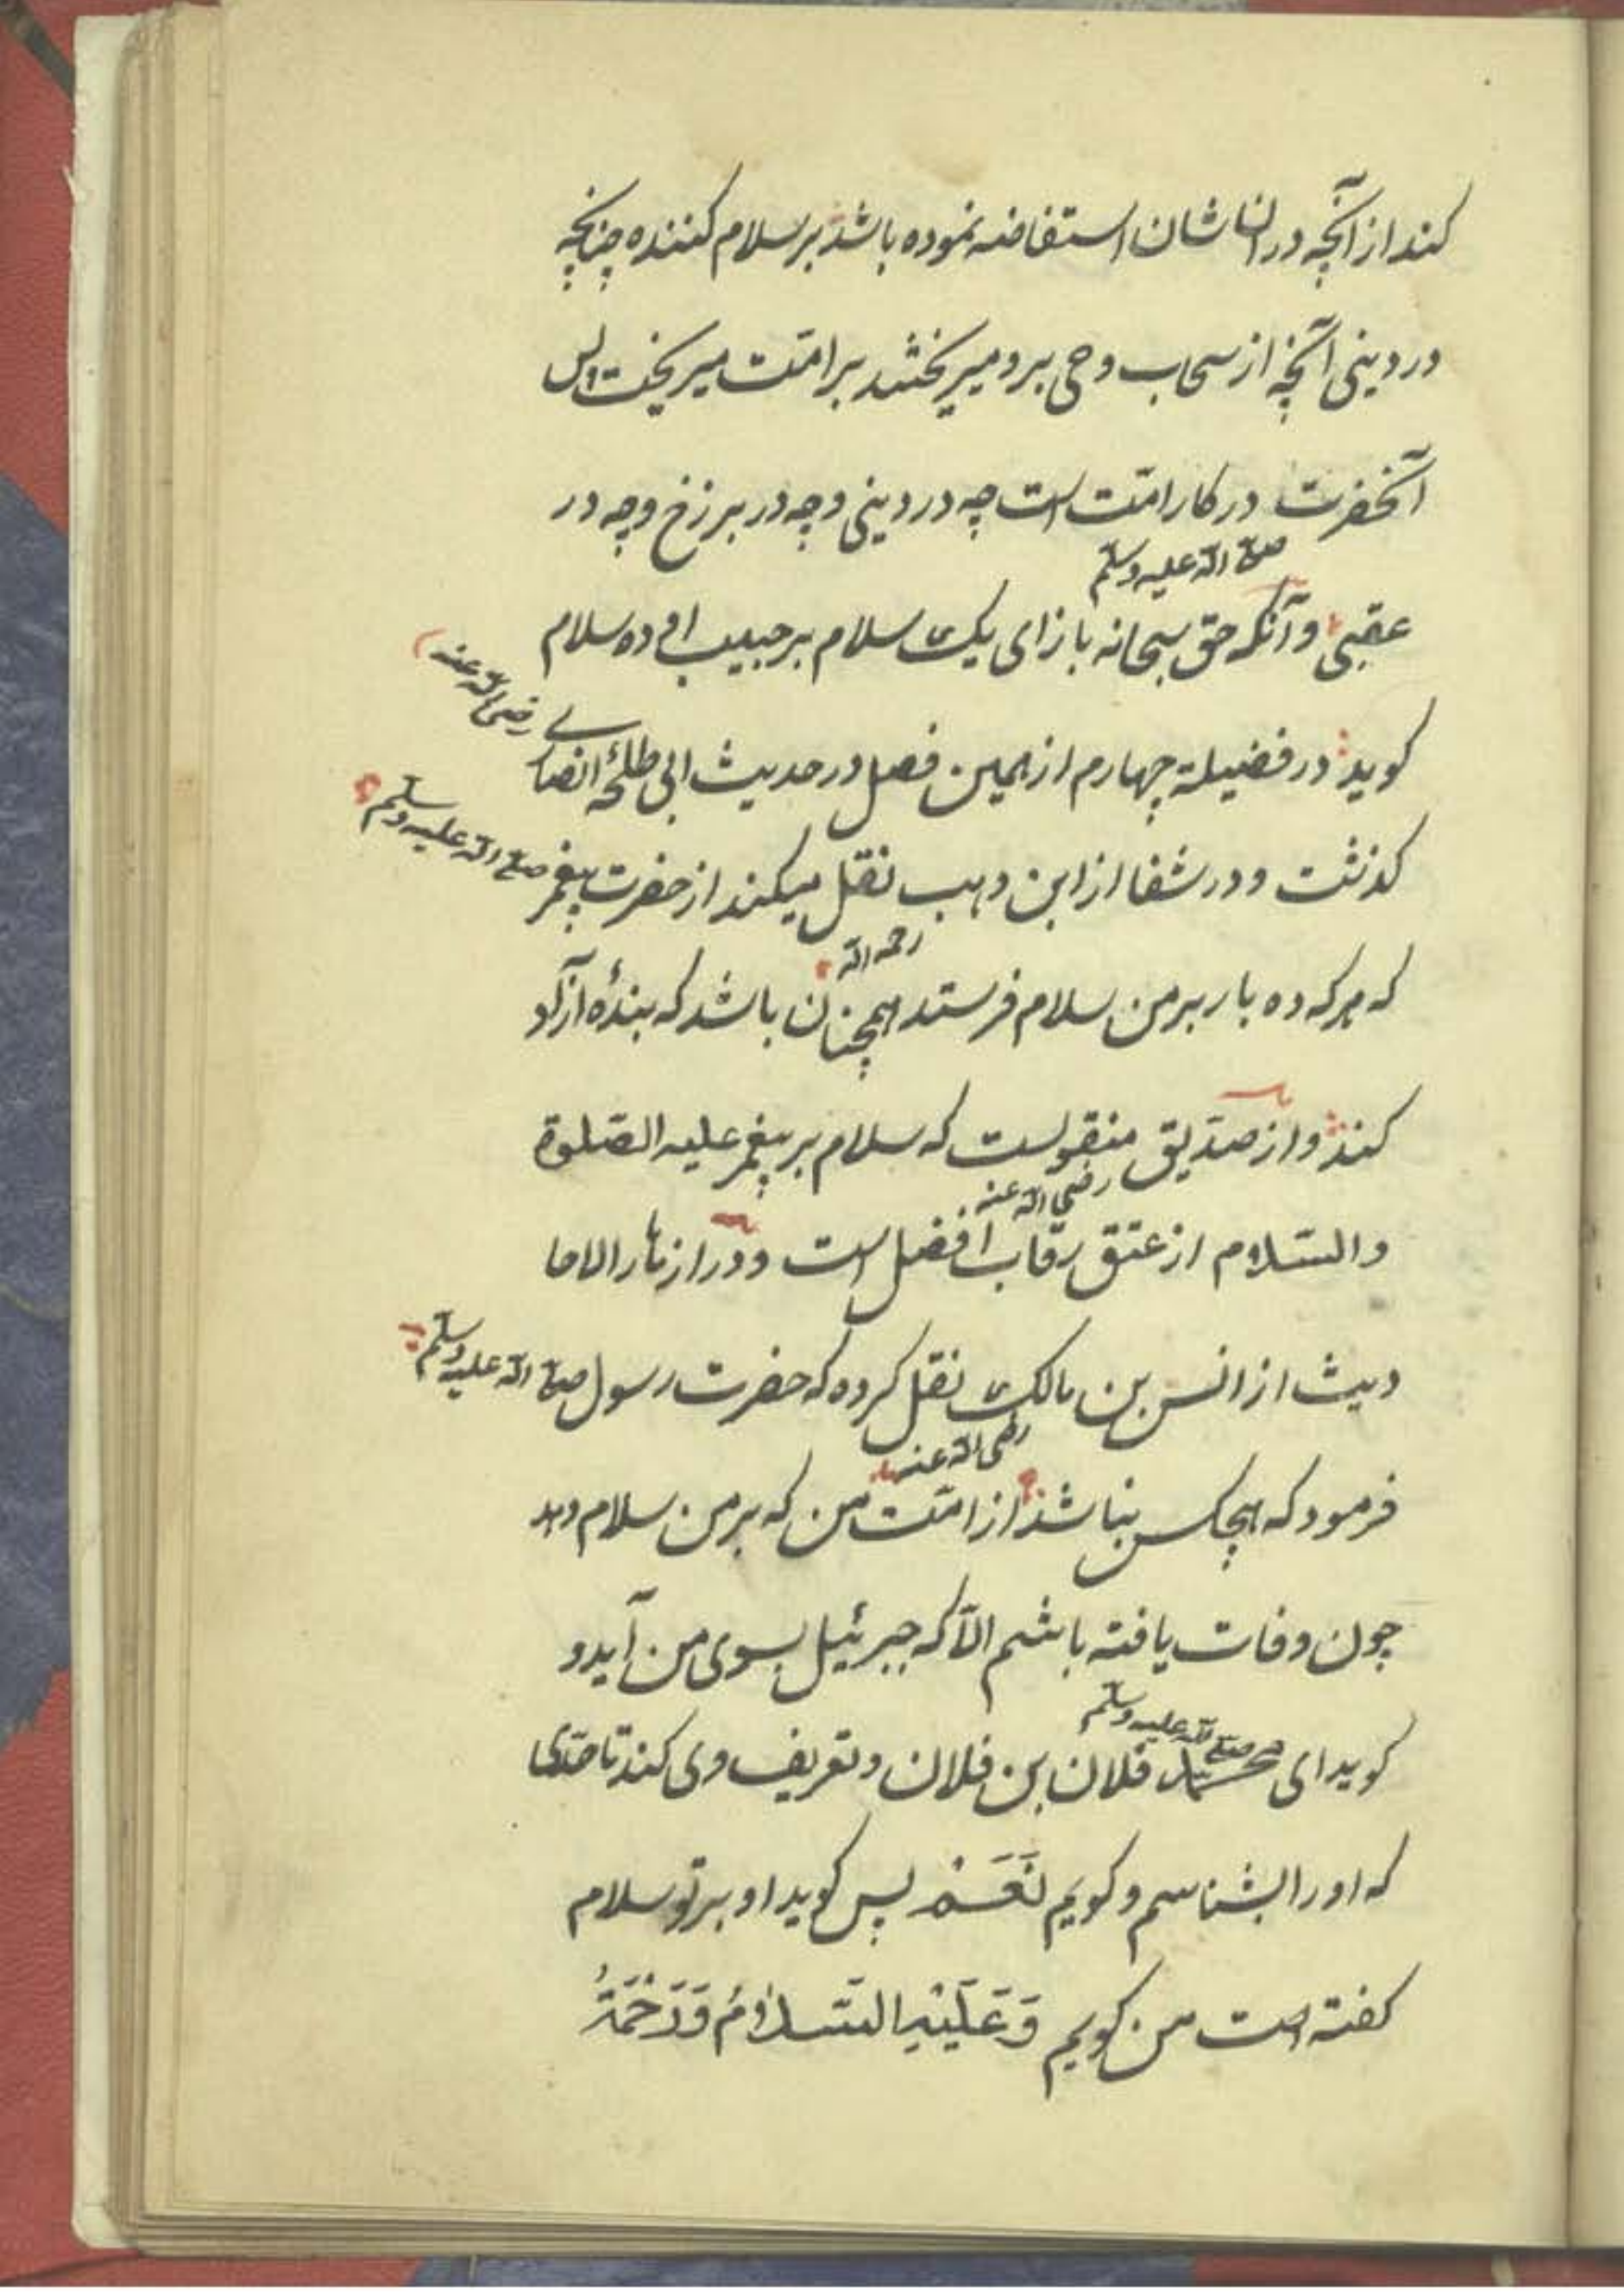 کند از آنچه در ان شان استفاضه نموده باشد بر سلام کننده چنانچه
در دینی آنچه از سحاب وحی برو میریختند بر امّت میریخت پس
آنحضرت در کار امّت است چه در دینی و چه در برزخ و چه در
صلی الله علیه وسلم
عقبی و آنکه حق سبحانه بازای یک سلام بر حبیب او ده سلام
کوید در فضیلة چهارم از همین فصل در حدیث ابی طلحهٔ انصاری رضی الله عنه
کذشت و در شفا از ابن وهب نقل میکند از حضرت پیغمبر صلی الله علیه وسلم
رحمه الله
که هر که ده بار بر من سلام فرستد همچنان باشد که بندهٔ آزاد
کند و از صدّیق منقولست که سلام بر پیغمبر علیه الصّلوة
رضی الله عنه
والسّلام از عتق رقاب افضل است و در ازهار الاحا
دیث از انس بن مالک نقل کرده که حضرت رسول صلی الله علیه وسلم
رضی الله عنه
فرمود که هیچکس نباشد از امّت من که بر من سلام دهد
چون وفات یافته باشم الّا که جبرئیل بسوی من آید و
صلی الله علیه وسلم
کوید ای محمد فلان بن فلان و تعریف وی کند تا حدّی
که او را بشناسم و کویم نَعَمْ پس کوید او بر تو سلام
کفته است من کویم وَعَلَیْهِ السَّلَامُ وَرَحْمَةُ